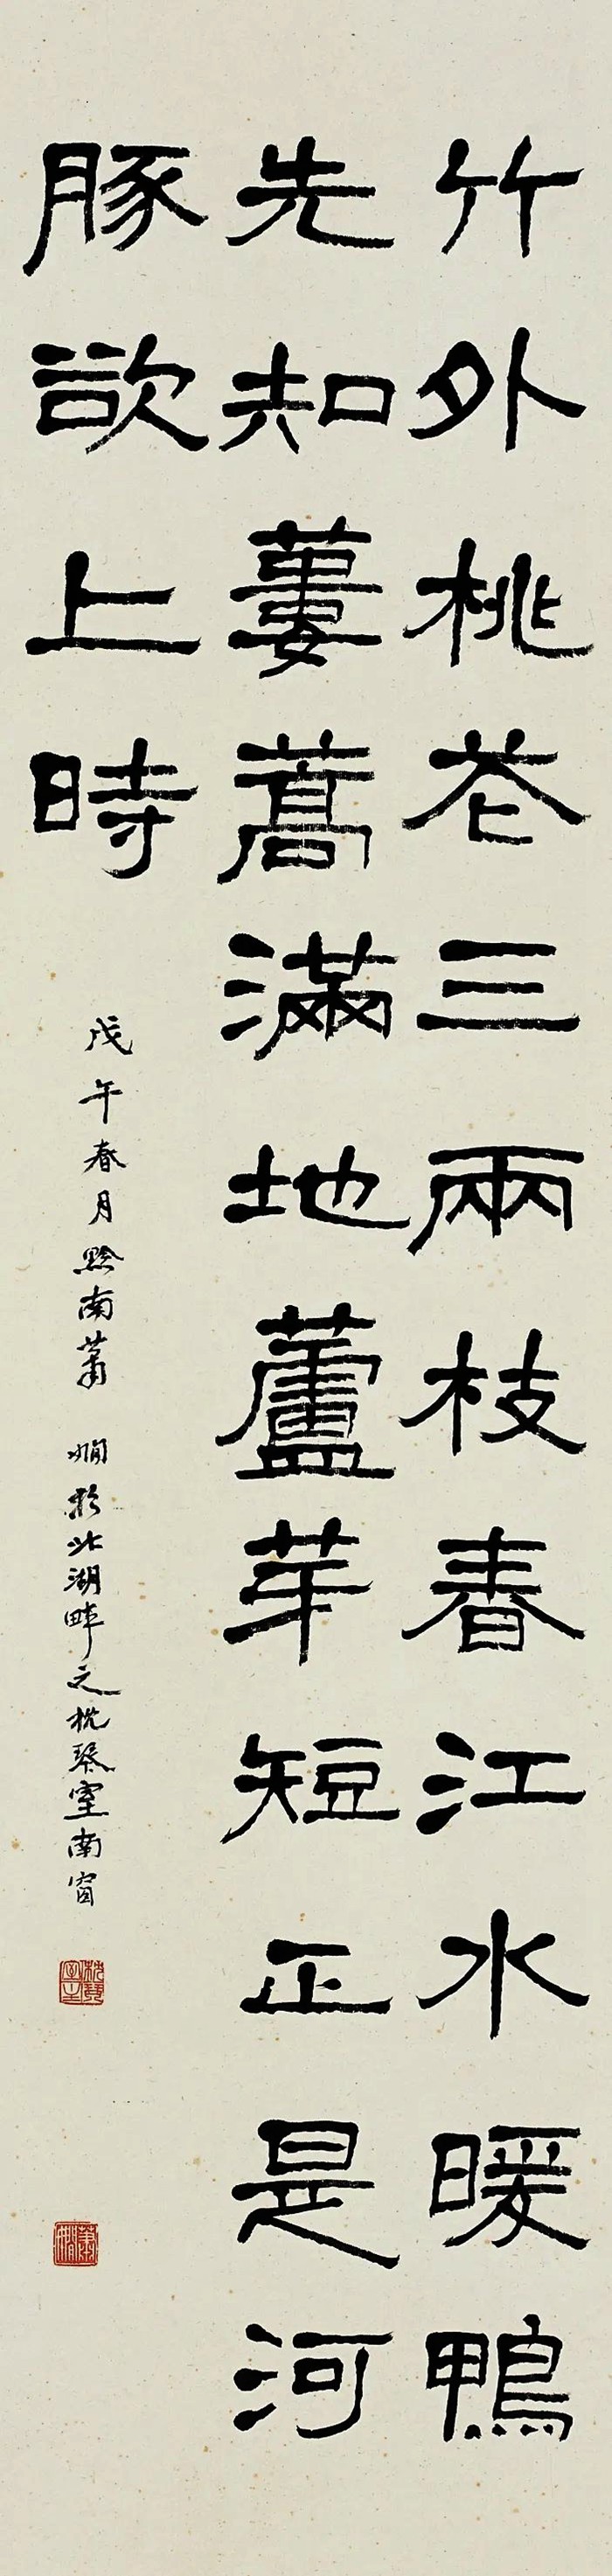 竹外桃花三兩枝春江水暖鴨
先知蔞蒿滿地蘆芽短正是河
豚欲上時
戊午春月黔南蕭嫻於北湖畔之枕琴室南窗
枕琴室
蕭嫻